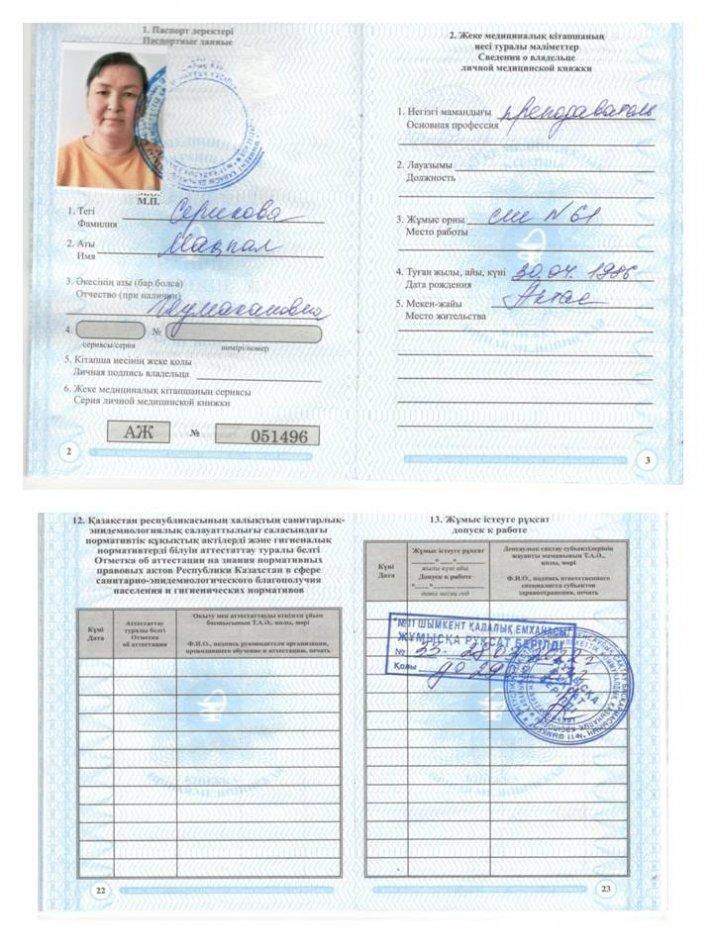 1. Паспорт деректері
Паспортные данные
М.П.
1. Тегі
Фамилия Серикова
2. Аты
Имя Мақпал
3. Әкесінің аты (бар болса)
Отчество (при наличии)
Жумахановна
4. №
сериясы/серия нөмірі/номер
5. Кітапша иесінің жеке қолы
Личная подпись владельца
6. Жеке медициналық кітапшаның сериясы
Серия личной медицинской книжки
АЖ № 051496
2
2. Жеке медициналық кітапшаның
иесі туралы мәліметтер
Сведения о владельце
личной медицинской книжки
1. Негізгі мамандығы
Основная профессия преподаватель
2. Лауазымы
Должность
3. Жұмыс орны
Место работы сш №61
4. Туған жылы, айы, күні
Дата рождения 30.04.1986
5. Мекен-жайы
Место жительства Актас
3
12. Қазақстан республикасының халықтың санитарлық-
эпидемиологиялық салауаттылығы саласындағы
нормативтік құқықтық актілерді және гигиеналық
нормативтерді білуін аттестаттау туралы белгі
Отметка об аттестации на знания нормативных
правовых актов Республики Казахстан в сфере
санитарно-эпидемиологического благополучия
населения и гигиенических нормативов
Күні
Дата
Аттестаттау
туралы белгі
Отметка
об аттестации
Оқыту мен аттестаттауды өткізген ұйым
басшысының Т.А.Ә., қолы, мөрі
Ф.И.О., подпись руководителя организации,
проводившего обучение и аттестацию, печать
22
13. Жұмыс істеуге рұқсат
допуск к работе
Күні
Дата
Жұмыс істеуге рұқсат
жылы күні айы
Допуск к работе
дата месяц год
Денсаулық сақтау субъектілерінің
жауапты маманының Т.А.Ә.,
қолы, мөрі
Ф.И.О., подпись ответственного
специалиста субъектов
здравоохранения, печать
"№11 ШЫМКЕНТ ҚАЛАЛЫҚ ЕМХАНАСЫ"
ЖҰМЫСҚА РҰҚСАТ БЕРІЛДІ
№
Қолы до
23